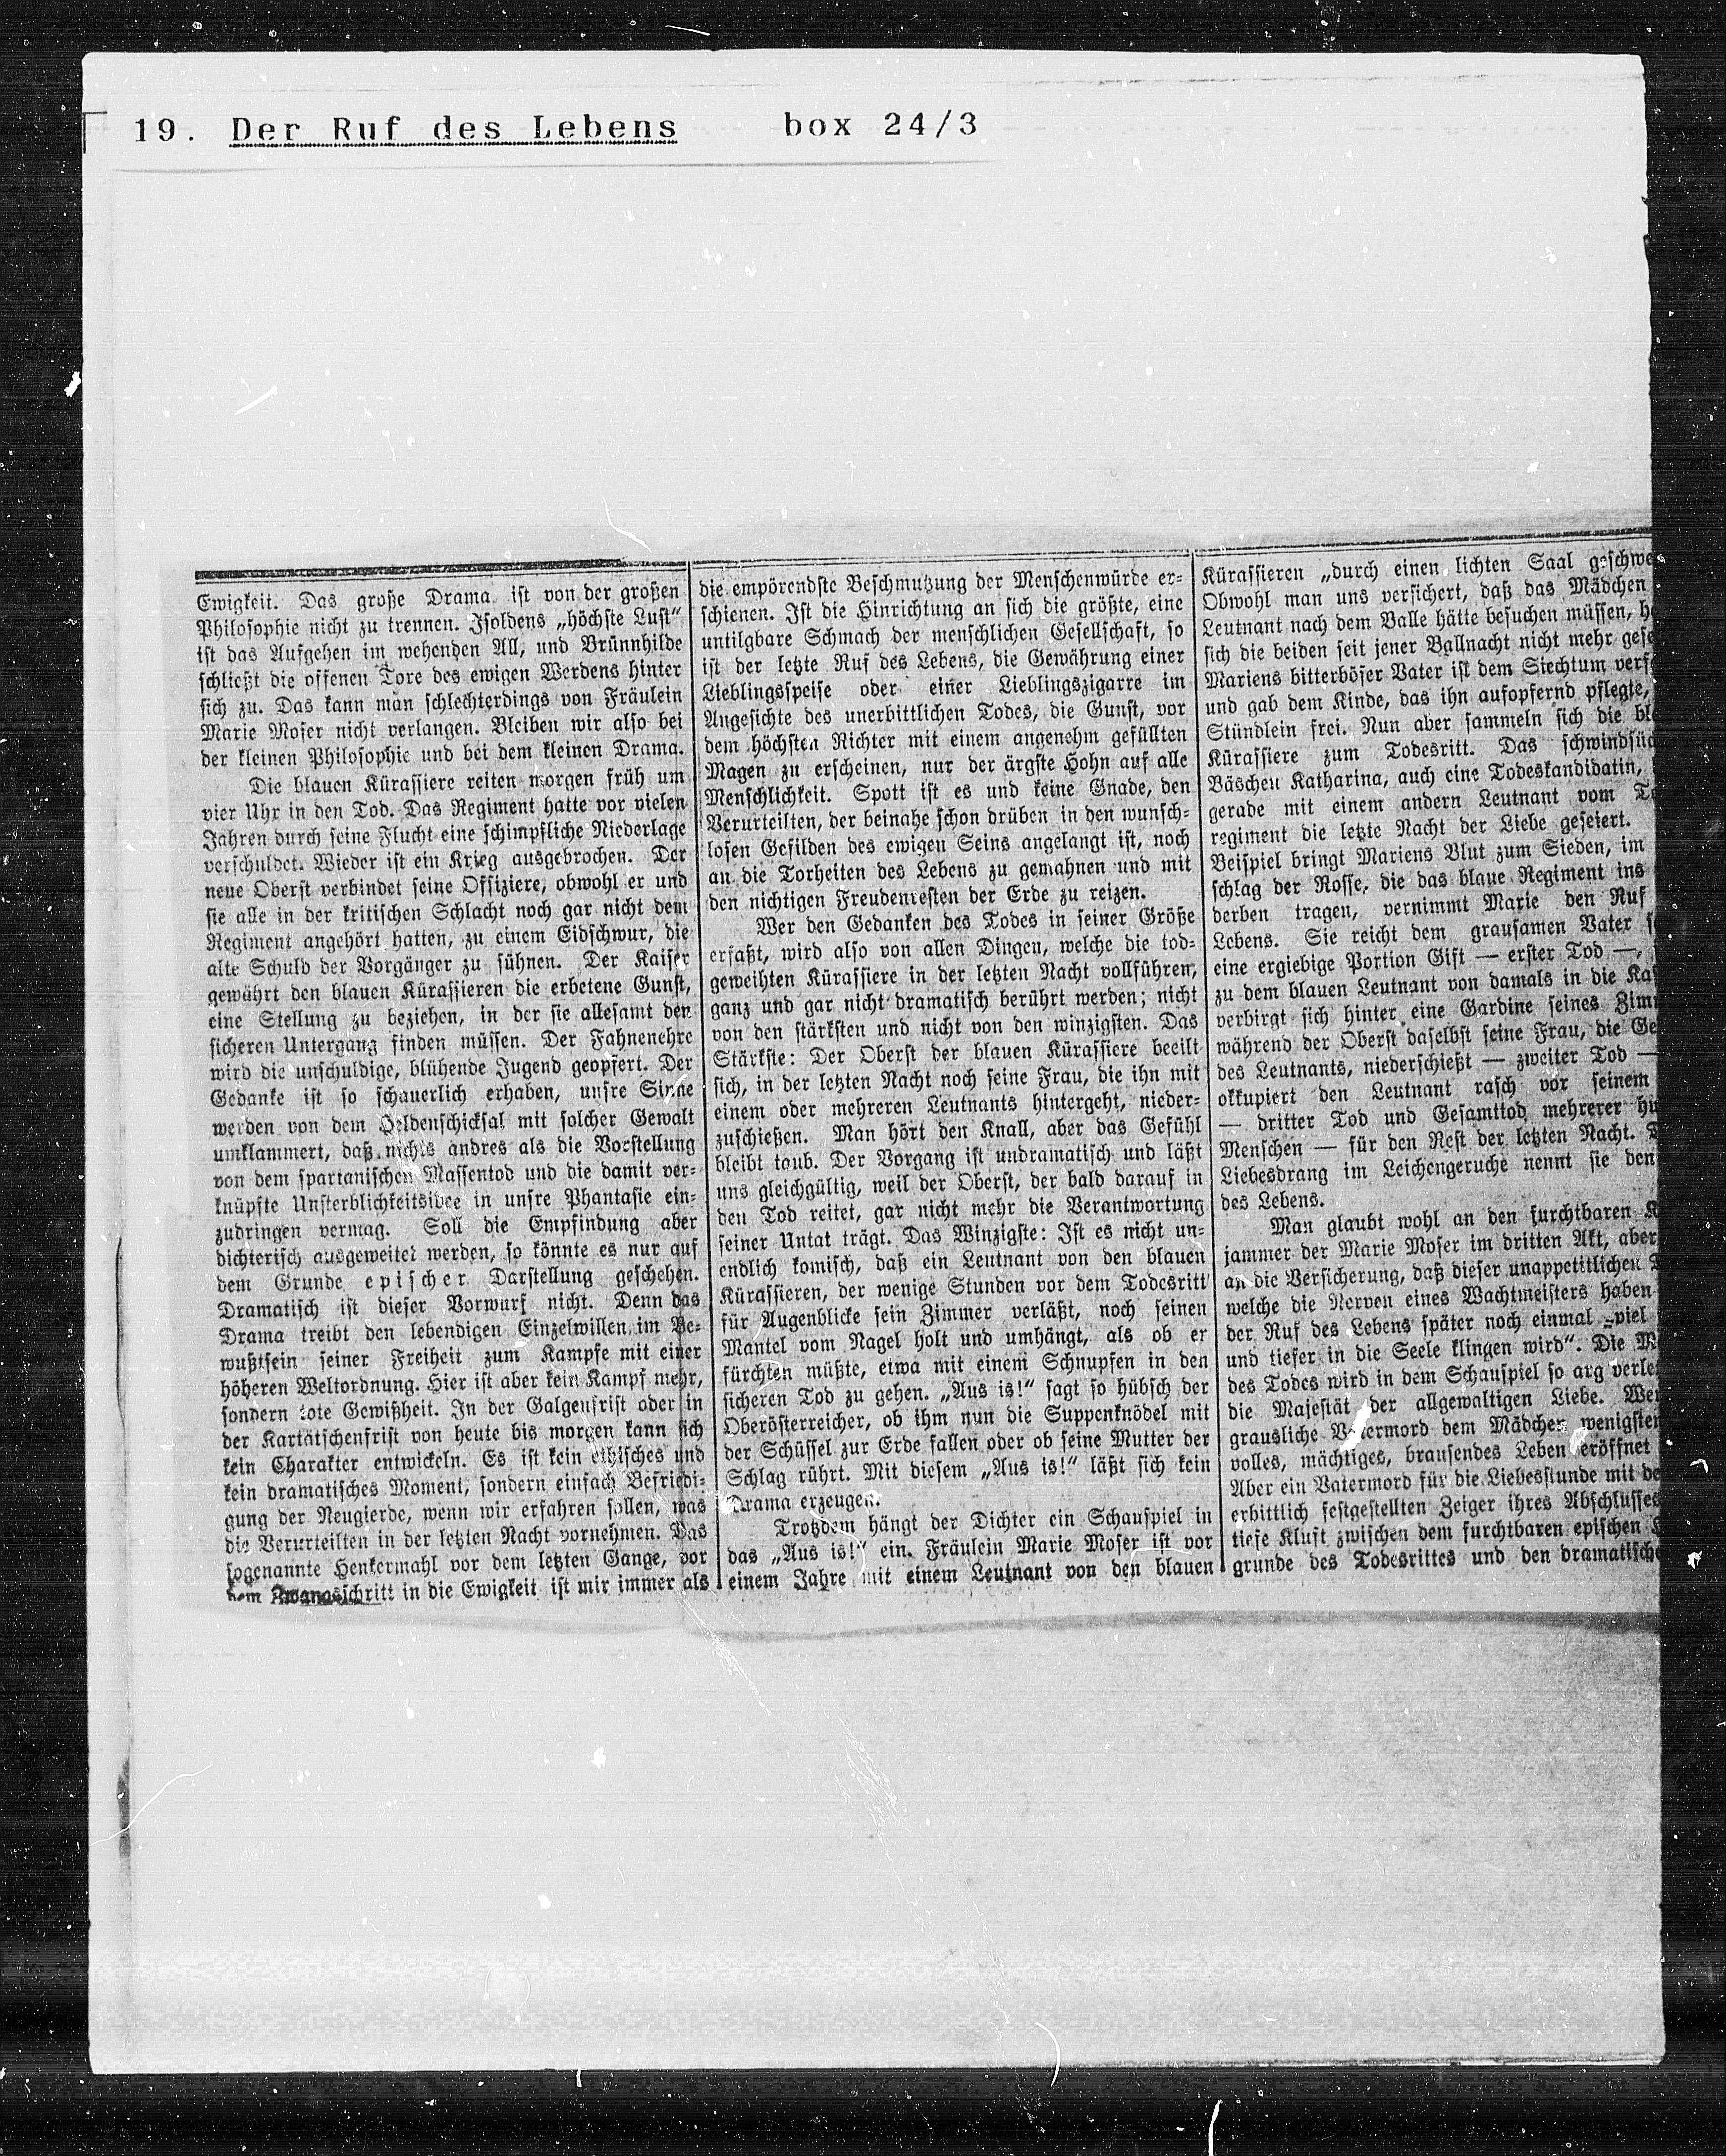 19. Der Ruf des Lebens box 24/3
Ewigkeit. Das große Drama ist von der großen
Philosophie nicht zu trennen. Isoldens „höchste Lust“
ist das Aufgehen im wehenden All, und Brünnhilde
schließt die offenen Tore des ewigen Werdens hinter
sich zu. Das kann man schlechterdings von Fräulein
Marie Moser nicht verlangen. Bleiben wir also bei
der kleinen Philosophie und bei dem kleinen Drama.
Die blauen Kürassiere reiten morgen früh um
vier Uhr in den Tod. Das Regiment hatte vor vielen
Jahren durch seine Flucht eine schimpfliche Niederlage
verschuldet. Wieder ist ein Krieg ausgebrochen. Der
neue Oberst verbindet seine Offiziere, obwohl er und
sie alle in der kritischen Schlacht noch gar nicht dem
Regiment angehört hatten, zu einem Eidschwur, die
alte Schuld der Vorgänger zu sühnen. Der Kaiser
gewährt den blauen Kürassieren die erbetene Gunst,
eine Stellung zu beziehen, in der sie allesamt den
sicheren Untergang finden müssen. Der Fahnenehre
wird die unschuldige, blühende Jugend geopfert. Der
Gedanke ist so schauerlich erhaben, unsre Sinne
werden von dem Heldenschicksal mit solcher Gewalt
umklammert, daß nichts andres als die Vorstellung
von dem spartanischen Massentod und die damit ver-
knüpfte Unsterblichkeitsidee in unsre Phantasie ein-
zudringen vermag. Soll die Empfindung aber
dichterisch ausgeweitet werden, so könnte es nur auf
dem Grunde epischer Darstellung geschehen.
Dramatisch ist dieser Vorwurf nicht. Denn das
Drama treibt den lebendigen Einzelwillen im Be-
wußtsein seiner Freiheit zum Kampfe mit einer
höheren Weltordnung. Hier ist aber kein Kampf mehr,
sondern tote Gewißheit. In der Galgenfrist oder in
der Kartätschenfrist von heute bis morgen kann sich
kein Charakter entwickeln. Es ist kein ethisches und
kein dramatisches Moment, sondern einfach Befriedi-
gung der Neugierde, wenn wir erfahren sollen, was
die Verurteilten in der letzten Nacht vornehmen. Das
sogenannte Henkermahl vor dem letzten Gange, vor
dem Zwangsschritt in die Ewigkeit ist mir immer als
die empörendste Beschmutzung der Menschenwürde er-
schienen. Ist die Hinrichtung an sich die größte, eine
untilgbare Schmach der menschlichen Gesellschaft, so
ist der letzte Ruf des Lebens, die Gewährung einer
Lieblingsspeise oder einer Lieblingszigarre im
Angesichte des unerbittlichen Todes, die Gunst, vor
dem höchsten Richter mit einem angenehm gefüllten
Magen zu erscheinen, nur der ärgste Hohn auf alle
Menschlichkeit. Spott ist es und keine Gnade, den
Verurteilten, der beinahe schon drüben in den wunsch-
losen Gefilden des ewigen Seins angelangt ist, noch
an die Torheiten des Lebens zu gemahnen und mit
den nichtigen Freudenresten der Erde zu reizen.
Wer den Gedanken des Todes in seiner Größe
erfaßt, wird also von allen Dingen, welche die tod-
geweihten Kürassiere in der letzten Nacht vollführen,
ganz und gar nicht dramatisch berührt werden; nicht
von den stärksten und nicht von den winzigsten. Das
Stärkste: Der Oberst der blauen Kürassiere beeilt
sich, in der letzten Nacht noch seine Frau, die ihn mit
einem oder mehreren Leutnants hintergeht, nieder-
zuschießen. Man hört den Knall, aber das Gefühl
bleibt taub. Der Vorgang ist undramatisch und läßt
uns gleichgültig, weil der Oberst, der bald darauf in
den Tod reitet, gar nicht mehr die Verantwortung
seiner Untat trägt. Das Winzigste: Ist es nicht un-
endlich komisch, daß ein Leutnant von den blauen
Kürassieren, der wenige Stunden vor dem Todesritt
für Augenblicke sein Zimmer verläßt, noch seinen
Mantel vom Nagel holt und umhängt, als ob er
fürchten müßte, etwa mit einem Schnupfen in den
sicheren Tod zu gehen. „Aus is!“ sagt so hübsch der
Oberösterreicher, ob ihm nun die Suppenknödel mit
der Schüssel zur Erde fallen oder ob seine Mutter der
Schlag rührt. Mit diesem „Aus is!“ läßt sich kein
Drama erzeugen.
Trotzdem hängt der Dichter ein Schauspiel in
das „Aus is!“ ein. Fräulein Marie Moser ist vor
einem Jahre mit einem Leutnant von den blauen
Kürassieren „durch einen lichten Saal geschwe
Obwohl man uns versichert, daß das Mädchen
Leutnant nach dem Balle hätte besuchen müssen, h
sich die beiden seit jener Ballnacht nicht mehr gese
Mariens bitterböser Vater ist dem Siechtum verf
und gab dem Kinde, das ihn aufopfernd pflegte,
Stündlein frei. Nun aber sammeln sich die bl
Kürassiere zum Todesritt. Das schwindsüc
Bäschen Katharina, auch eine Todeskandidatin,
gerade mit einem andern Leutnant vom T
regiment die letzte Nacht der Liebe gefeiert.
Beispiel bringt Mariens Blut zum Sieden, im
schlag der Rosse, die das blaue Regiment ins
derben tragen, vernimmt Marie den Ruf
Lebens. Sie reicht dem grausamen Vater s
eine ergiebige Portion Gift — erster Tod —,
zu dem blauen Leutnant von damals in die Kas
verbirgt sich hinter eine Gardine seines Zim
während der Oberst daselbst seine Frau, die Ge
des Leutnants, niederschießt — zweiter Tod —
okkupiert den Leutnant rasch vor seinem
— dritter Tod und Gesamttod mehrerer hu
Menschen — für den Rest der letzten Nacht. D
Liebesdrang im Leichengeruche nennt sie den
des Lebens.
Man glaubt wohl an den furchtbaren K
jammer der Marie Moser im dritten Akt, aber
an die Versicherung, daß dieser unappetitlichen D
welche die Nerven eines Wachtmeisters haben
der Ruf des Lebens später noch einmal „viel
und tiefer in die Seele klingen wird“. Die M
des Todes wird in dem Schauspiel so arg verle
die Majestät der allgewaltigen Liebe. Wen
grausliche Vatermord dem Mädchen wenigsten
volles, mächtiges, brausendes Leben eröffnet
Aber ein Vatermord für die Liebesstunde mit de
erbittlich festgestellten Zeiger ihres Abschlusses
tiefe Kluft zwischen dem furchtbaren epischen
grunde des Todesrittes und den dramatische